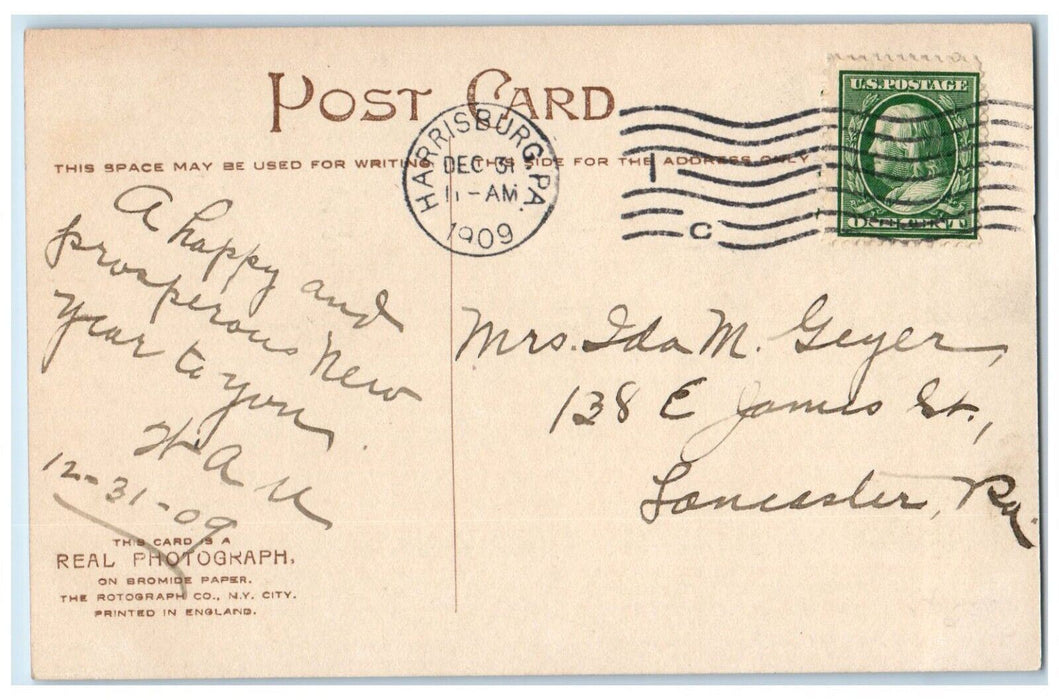 POST CARD
THIS SPACE MAY BE USED FOR WRITING
THIS SIDE FOR THE ADDRESS ONLY
HARRISBURG, PA.
DEC 31
11-AM
1909
1
C
U.S. POSTAGE
ONE CENT
A happy and
prosperous New
Year to you.
12-31-09
Mrs. Ida M. Geyer,
138 E James St.,
Lancaster, Pa.
THIS CARD IS A
REAL PHOTOGRAPH,
ON BROMIDE PAPER.
THE ROTOGRAPH CO., N.Y. CITY.
PRINTED IN ENGLAND.